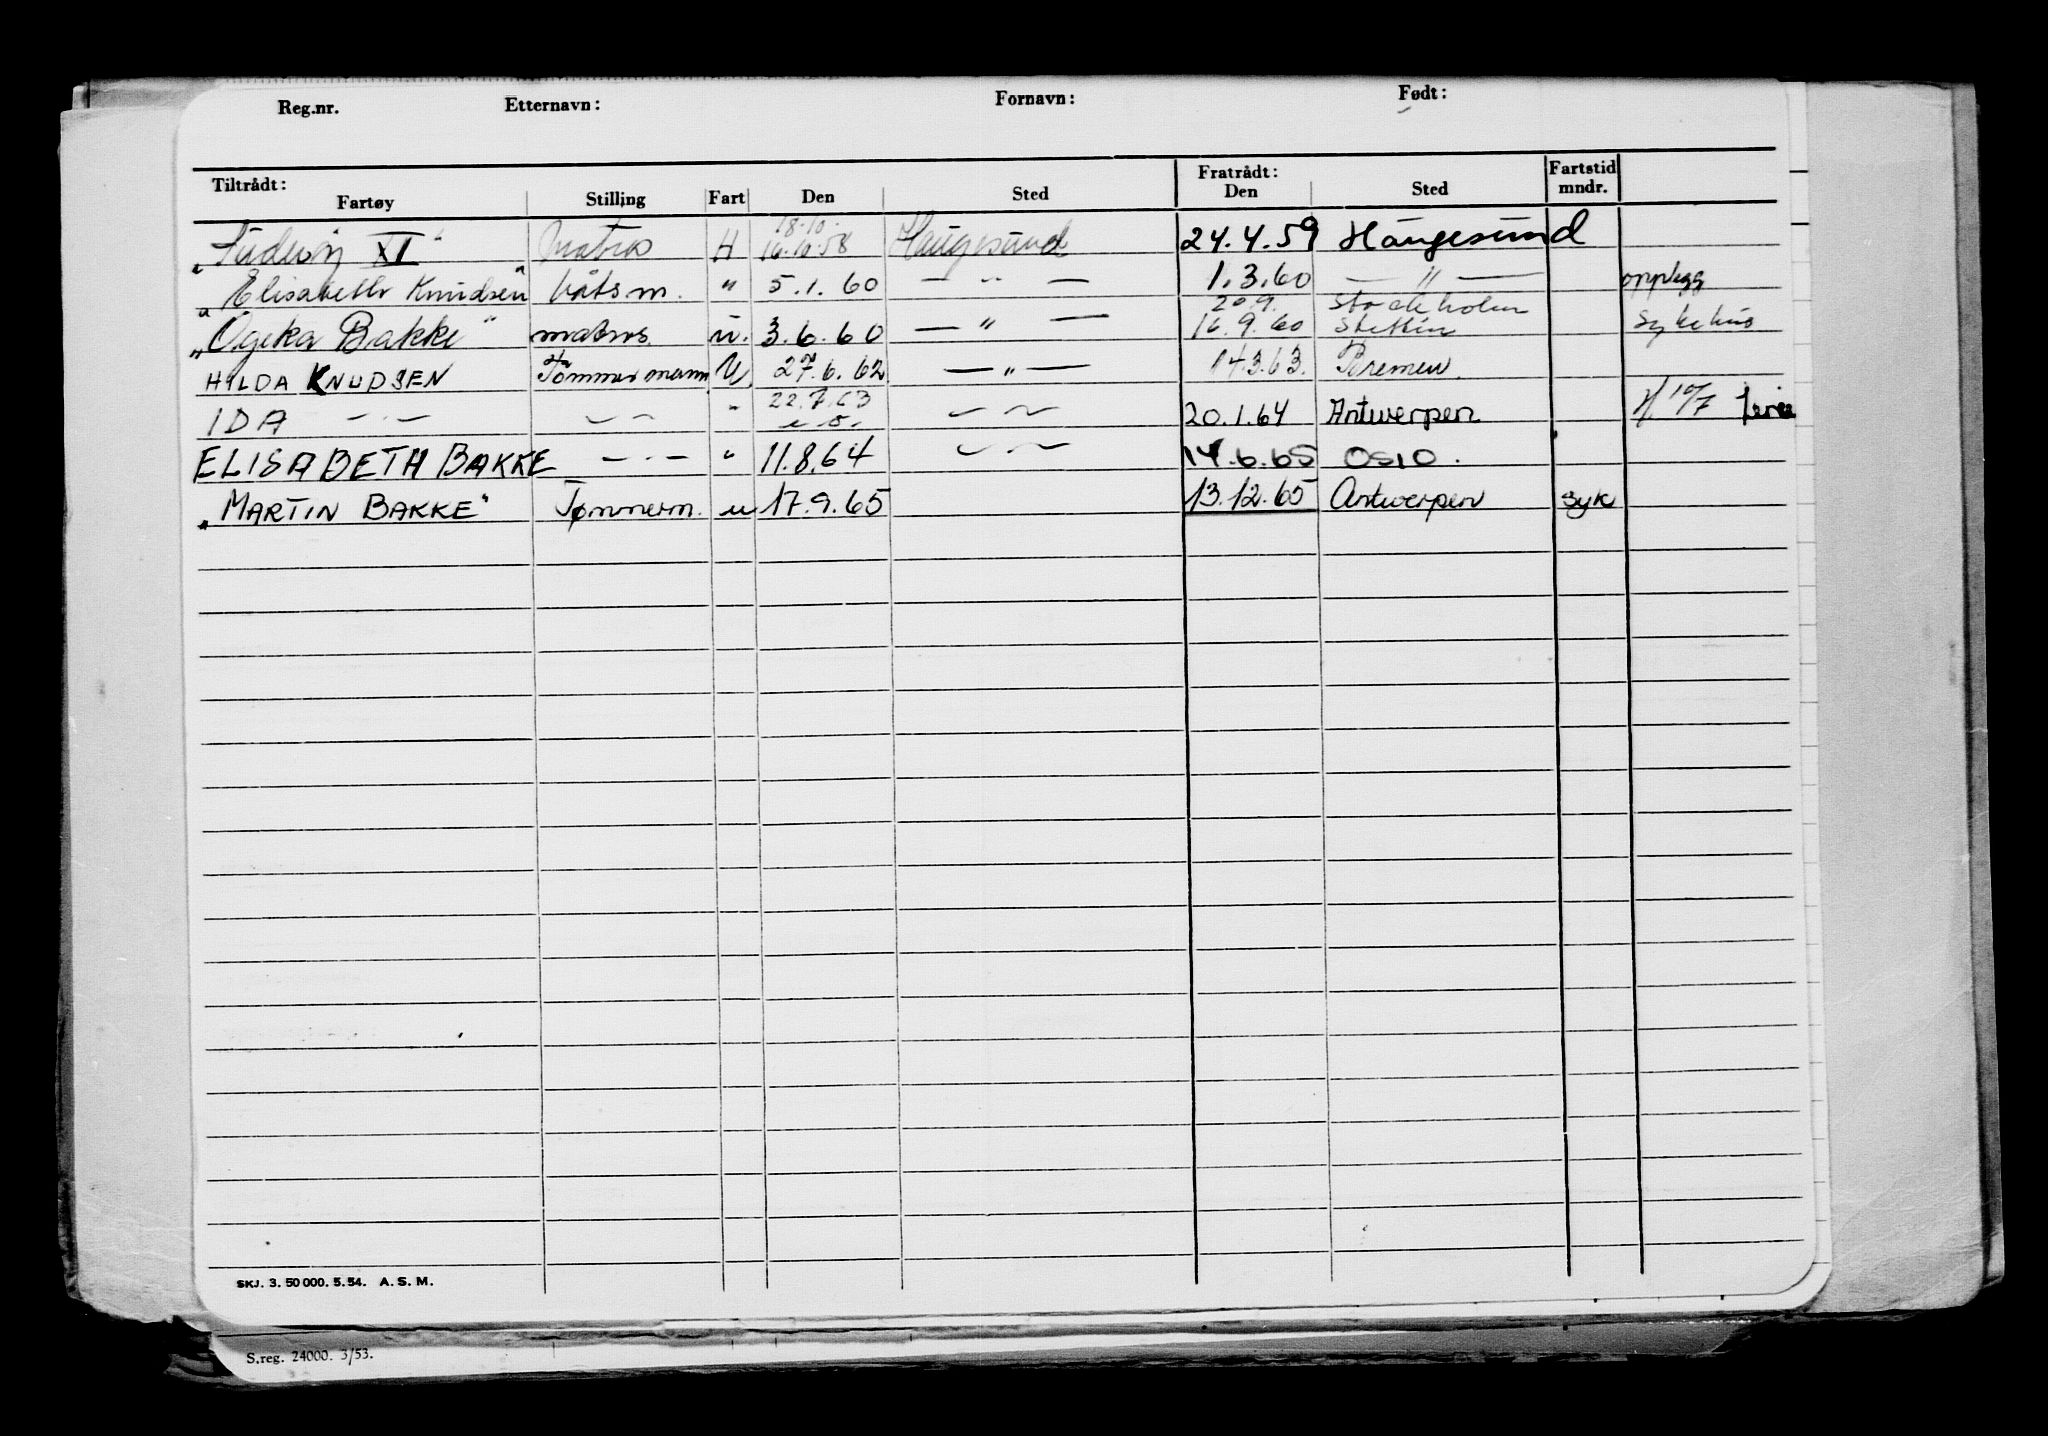 Reg.nr. Etternavn: Fornavn: Født:
Tiltrådt: Fratrådt: Fartstid
Fartøy Stilling Fart Den Sted Den Sted mndr.
18.10.
XI" Matros H 16.10.58 Haugesund 24.4.59 Haugesund
"Elisabeth Knudsen" båtsm. " 5.1.60 — " — 1.3.60 — " — opplegg
20.9. Stockholm
"Ogeka Bakke" matros. u. 3.6.60 — " — 16.9.60 Stettin Sykehus
HILDA KNUDSEN Tömmermann U. 27.6.62 — " — 14.3.63. Bremen.
22.7.63
IDA — " — — " — " — " — 20.1.64 Antwerpen 10/7 ferie
ELISABETH BAKKE — " — " 11.8.64 — " — 14.6.65 OSlO.
"MARTIN BAKKE" Tømmerm. u 17.9.65 13.12.65 Antwerpen syk
SKJ. 3. 50 000. 5.54. A. S. M.
S.reg. 24000. 3/53.